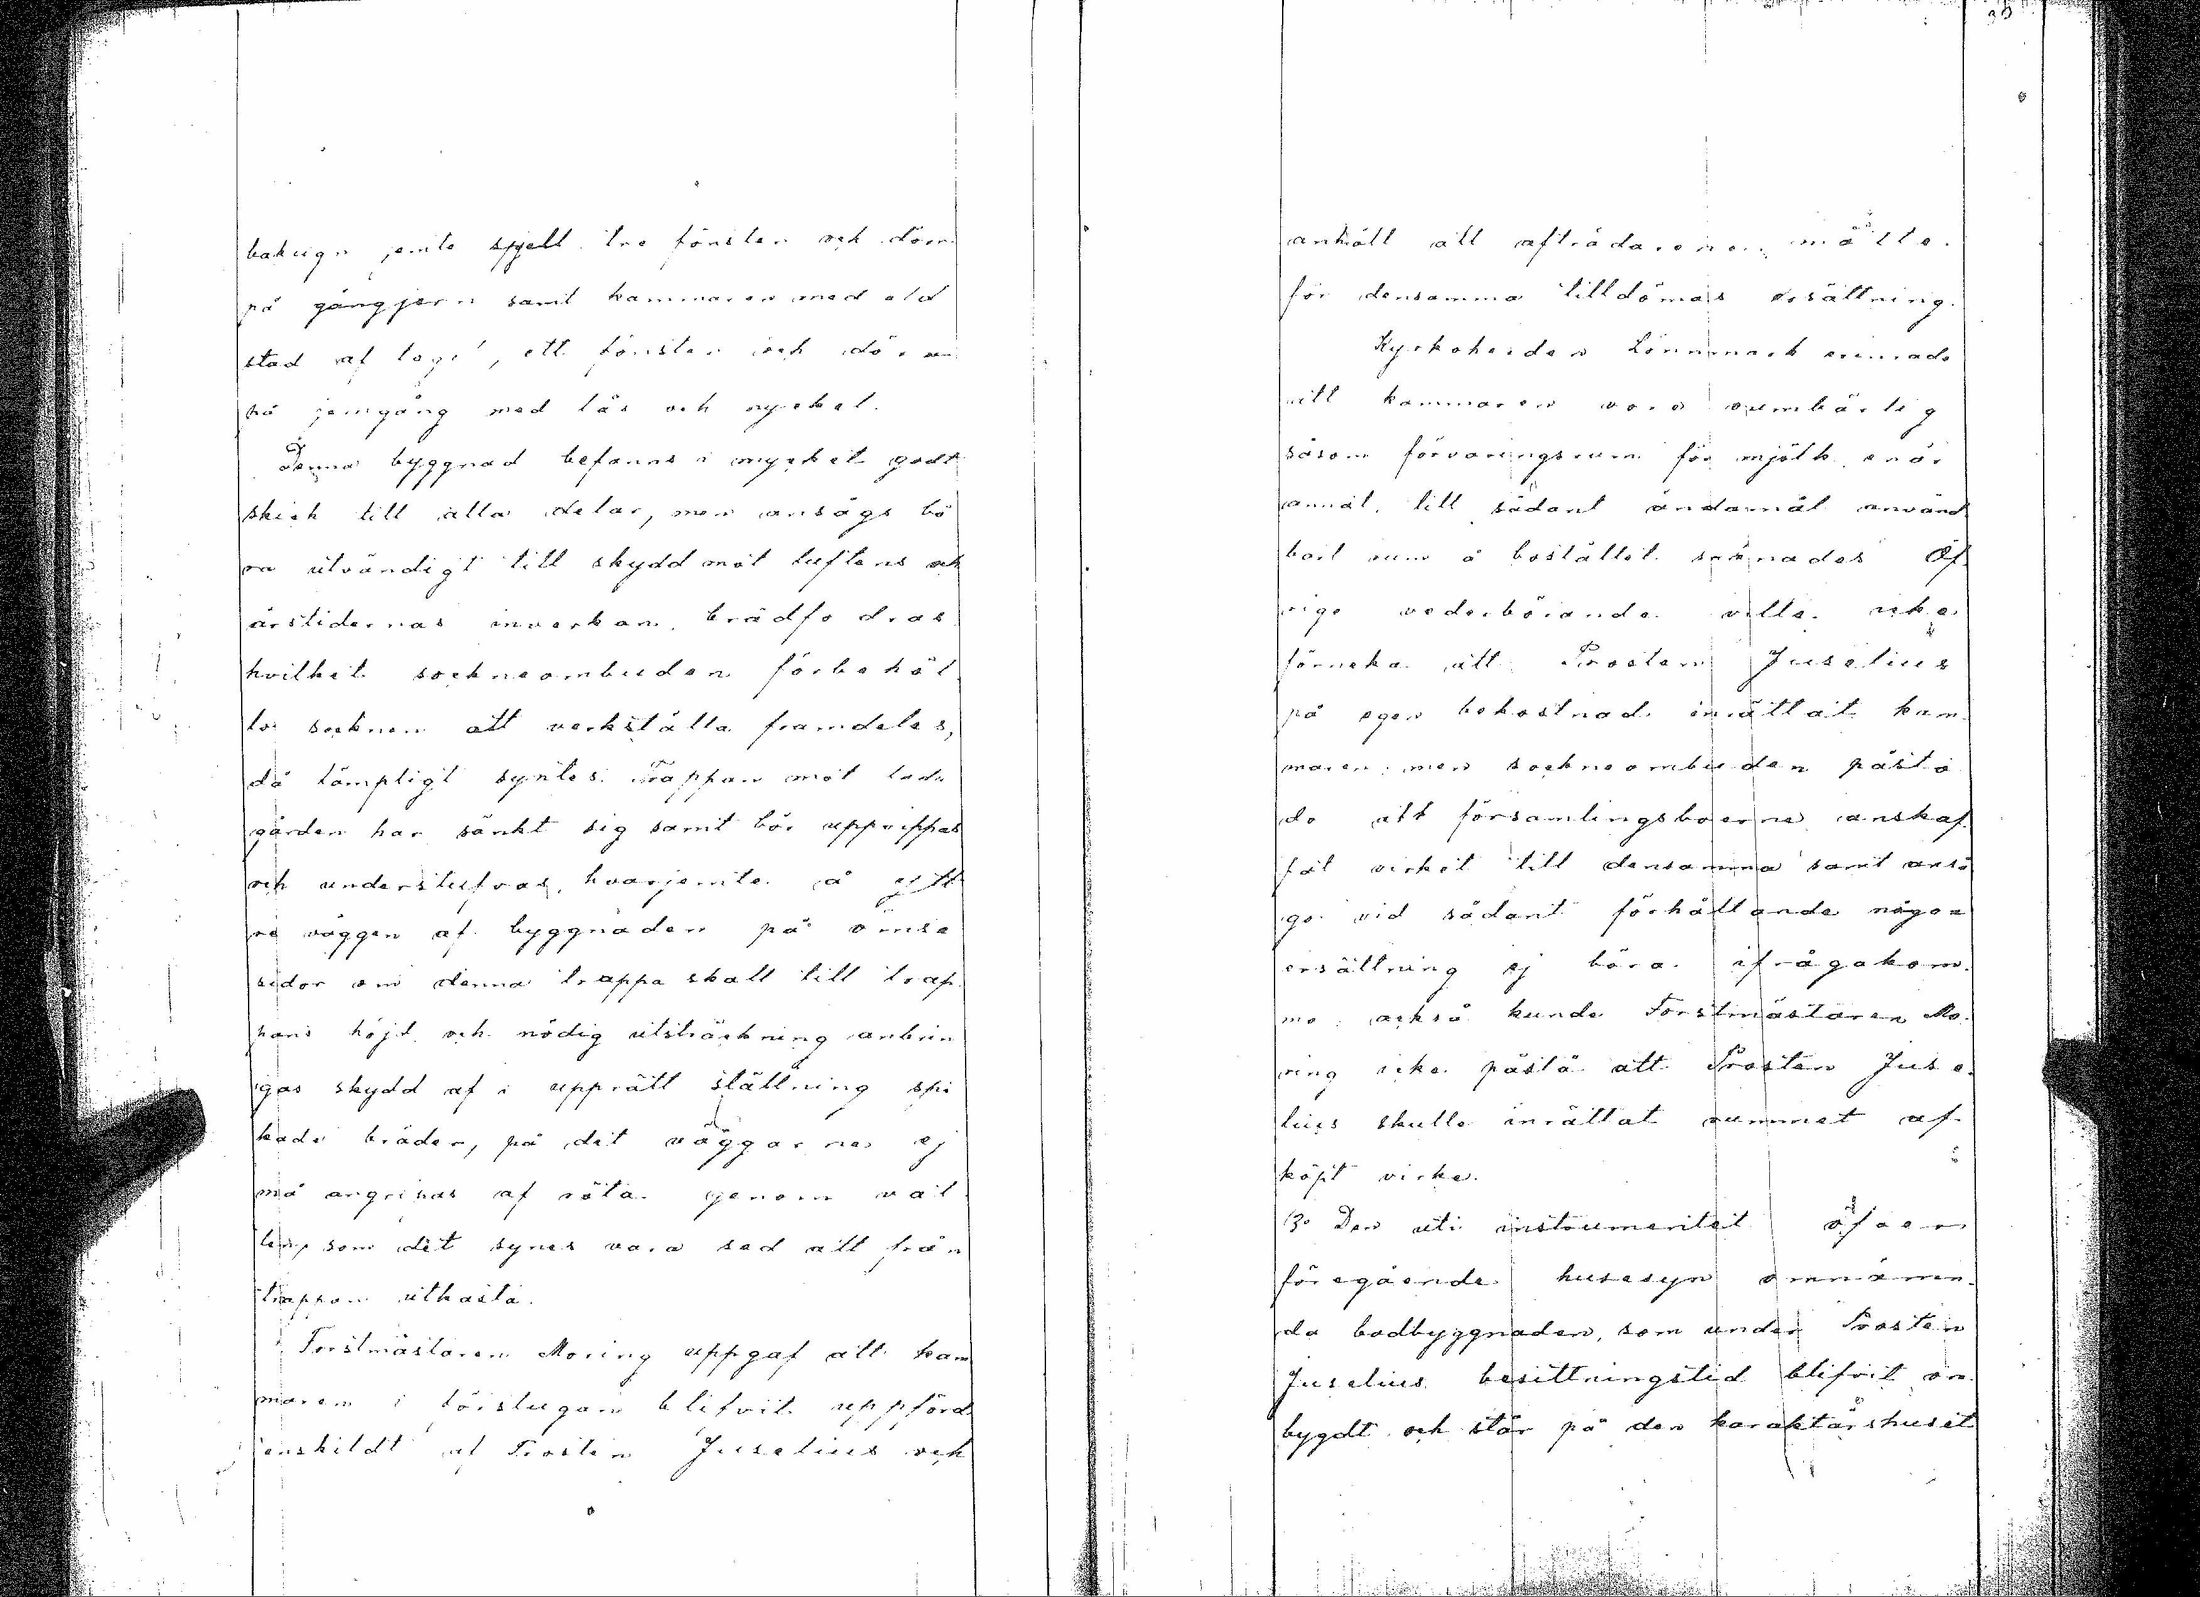 bakugn jemte spjell tre fönster och dörr
på gångjern samt kammaren med eld
stad af tegel, ett fönster och dörr
på jerngång med lås och nyckel.
Denna byggnad befanns i mycket godt
skick till alla delar, men ansågs bö
ra utvändigt till skydd mot luftens och
årstidernas inverkan, brädfodras
hvilket sockneombuden förbehöl
lo socknen att verkställa framdeles,
då lämpligt syntes. Trappan mot ladu
gården har sänkt sig samt bör upprippas
och understufvas, hvarjemte å ytt
re väggen af byggnaden på ömse
sidor om denna trappa skall till trap
pans höjd och nödig utsträckning anbrin
gas skydd af i upprätt ställning spi
kade bräder, på det väggarne ej
må angripas af röta genom vat
ten, som det synes vara sed att från
trappan utkasta.
Forstmästaren Moring uppgaf att kam
maren i lörstugan blifvit uppförd
enskildt af Prosten Juselius och
30
anhöll att afträdaren måtte
för densamma tilldömas ersättning.
Kyrkoherden Lönnmark erinrade
att kammaren vore oumbärlig
såsom förvaringsrum för mjölk enär
annat, till sådant ändamål använd
bart rum å bostället saknades Öf
rige vederbörande ville icke
förneka att Prosten Juselius
på egen bekostnad inrättat kam
maren; men sockneombuden påstå
do att församlingsboerne anskaf
fat virket till densamma samt anså
go vid sådant förhållande någon
ersättning ej böra ifrågakom
ma; också kunde Forstmästaren Mo
ring icke påstå att Prosten Juse
lius skulle inrättat rummet af
köpt virke.
13o Den uti instrumentet öfver
föregående husesyn omnämn
da bodbyggnaden, som under Prosten
Juselius besittningstid blifvit om
bygdt och står på den karaktärshuset